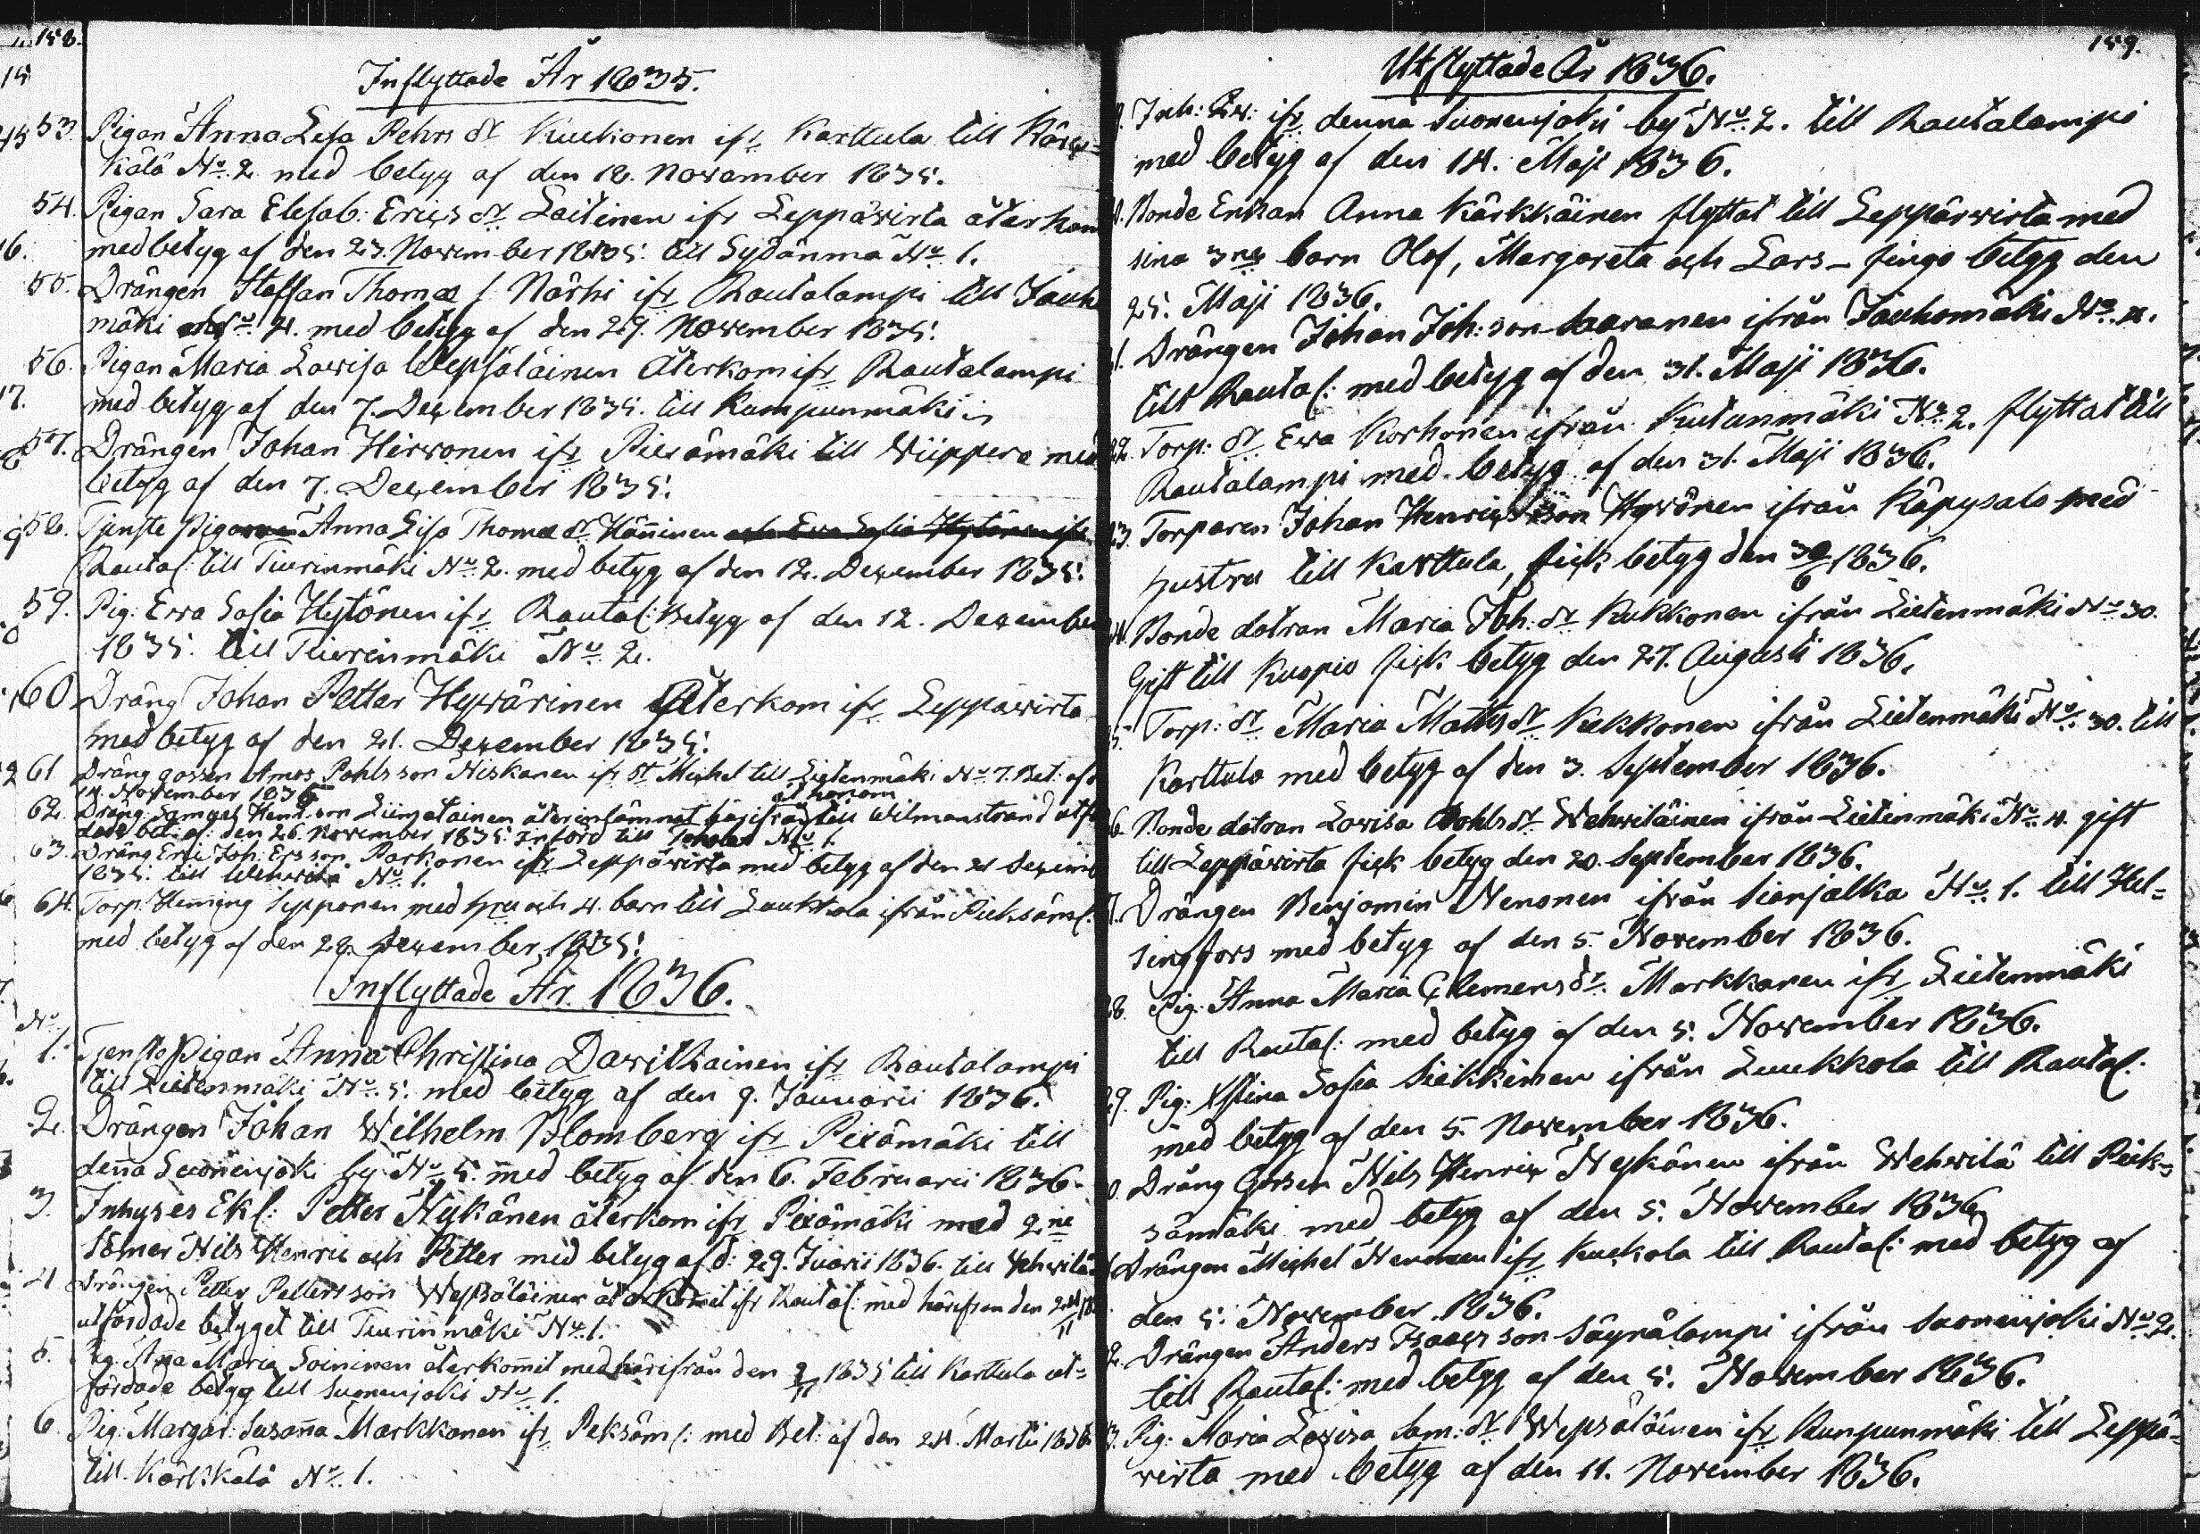 158.
Inflyttade År 1835.
53. Pigan Anna Lesa Pehrs dr Kuckonen ifr Karttula till Kärk=
kälä No. 2 med betyg af den 18. November 1835.
54. Pigan Sara Elesab: Erics dr Laitinen ifr Leppävirta återkom
med betyg af den 23. November 1835. till Sydänmä No. 1.
55. Drängen Staffan Thomæ s. Närhi ifr Rautalampi till Jauh
mäki No. 4. med betyg af den 29. November 1835.
56. Pigan Maria Lovisa Wepsäläinen Återkom ifr Rautalampi
med betyg af den 7. December 1835. till Kumpunmäki
57. Drängen Johan Hirvonen ifr Piexämäki till Wiippero med
betyg af den 7. December 1835.
58. Tjenste Pigan Anna Lisa Thomæ dr Hänninen och Eva Sofia Hytönen ifr
Rautal: till Tiurinmäki No. 2. med betyg af den 12. December 1835.
59. Pig: Eva Sofia Hytönen ifr Rautal: Betyg af den 12. December
1835. till Tiurinmäki No. 2.
60 Dräng Johan Petter Hyvärinen Återkom ifr Leppävirta
med betyg af den 21. December 1835.
61 Dräng gossen Amos Pohls son Niskanen ifr St Michel till Lietenmäki No 7. Bet: af d
14. November 1835
åt honom
62. Dräng Samuel Hend: son Liimatainen återinlämnat härifrån till Wilmanstrand utfär
dade bet: af den 26. November 1835. Införd till No. 1.
63. Dräng Eric Joh: Ers son Parkonen ifr Leppävirta med betyg af den 21 Decemb
1835. till Wehvilä No. 1.
64. Torp. Heming Sepponen med hru och 4. barn till Luukkola ifrån Pieksäm:
med betyg af den 28. December 1835.
Inflyttade År 1836.
No.
1. Tjenste Pigan Anna Christina Davithainen ifr Rautalampi
till Lietenmäki No. 5. med betyg af den 9. Januarii 1836.
2. Drängen Johan Wilhelm Blomberg ifr Pexämäki till
denna Suonenjoki by No. 5. med betyg af den 6. Februarii 1836.
3. Inhyses Ekl: Petter Nykänen återkom ifr Pexämäki med 2ne
Söner Nils Henric och Petter med betyg af d: 29. Juarii 1836. till Vehvilä
4 Drängen Petter Petters son Wepsäläinen återkomit ifr Rautal: med härifrån den 24/11
utfärdade betyget till Tiurinmäki No. 1.
5. Pig. Anna Maria Soininen återkomit med härifrån den 1835 till Karttula ut=
färdade betyg till Suonenjoki No 1.
6. Pig: Margar: Susanna Markkanen ifr Peksäm: med Bet: af den 24. Martii 1836
till Kärkkälä No. 1.
159.
Utflyttade År 1836.
ifr denna Suonenjoki by No. 2. till Rautalampi
med betyg af den 14. Maji 1836.
Bonde Enkan Anna Kärkkäinen flyttat till Leppävirta med
sina 3ne barn Olof, Margareta och Lars – finge betyg den
25. Maji 1836.
21. Drängen Johan Joh: son Savanen ifrån Jauhomäki No. 4.
till Rautal: med betyg af den 31. Maji 1836.
22. Torp: dr Eva Korhonen ifrån Kutunmäki No. 2. flyttat till
Rautalampi med betyg af den 31. Maji 1836.
23. Torparen Johan Henrics son Hyvönen ifrån Käpysalo med
hustru till Karttula, fick betyg den 30/6 1836.
24. Bonde dotran Maria Joh: dr Kukkonen ifrån Lietenmäki No. 30.
Gift till Kuopio fick betyg den 27. Augusti 1836.
25. Torp: dr Maria Matts dr Kekkonen ifrån Lietenmäki No. 30. till
Karttula med betyg af den 3. September 1836.
26. Bonde dotran Lovisa Pohls dr Wehviläinen ifrån Lietenmäki No. 4. gift
till Leppävirta fick betyg den 20. September 1836.
27. Drängen Benjamin Nenonen ifrån Sianjalka No. 1. till Hel=
singfors med betyg af den 5. November 1836.
28. Pig: Anna Maria Clemens dr. Markkanen ifr Lietenmäki
till Rautal: med betyg af den 5. November 1836.
29. Pig: Xstina Sofia Sickkinen ifrån Luukkola till Rautal:
med betyg af den 5. November 1836.
30. Dräng Gossen Nils Henric Nykänen ifrån Wehvilä till Piek=
sämäki med betyg af den 5. November 1836.
31. Drängen Michel ifr Kuckola till Rautal: med betyg af
den 5. November 1836.
32. Drängen Anders Isaacs son Säynälampi ifrån Suonenjoki No. 2.
till Rautal: med betyg af den 5. November 1836.
33. Pig: Maria Lovisa Sam: dr Wepsäläinen ifr Kumpunmäki till Leppä=
virta med betyg af den 11. November 1836.